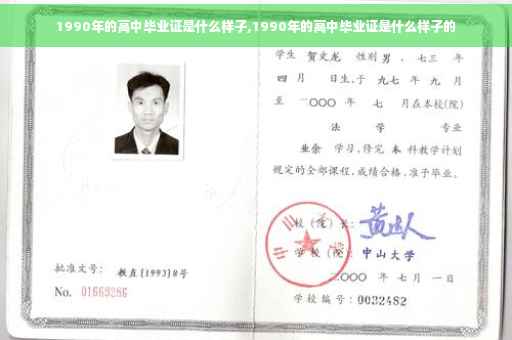 1990年的高中毕业证是什么样子,1990年的高中毕业证是什么样子的
学生 贺文龙 性别 男 、七三 年
四 月 日生,于 九七 年 九 月
至 二〇〇〇 年 七 月在本校(院)
法 学 专业
业余 学习,修完 本 科教学计划
规定的全部课程,成绩合格,准予毕业。
校(院)长:
学校(院): 中山大学
二〇〇〇 年 七 月 一 日
批准文号: 教直[1993]8号
No. 01669286
学校编号: 0032482